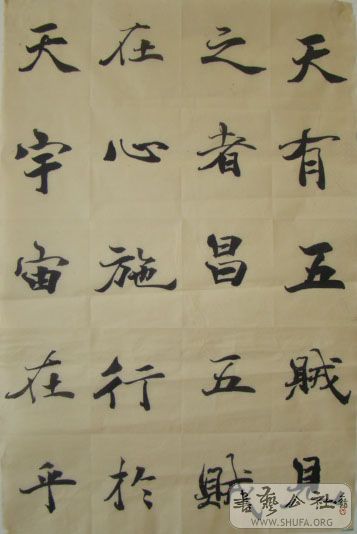 天有五賊見
之者昌五賊
在心施行於
天宇宙在乎
書藝公社
WWW.SHUFA.ORG